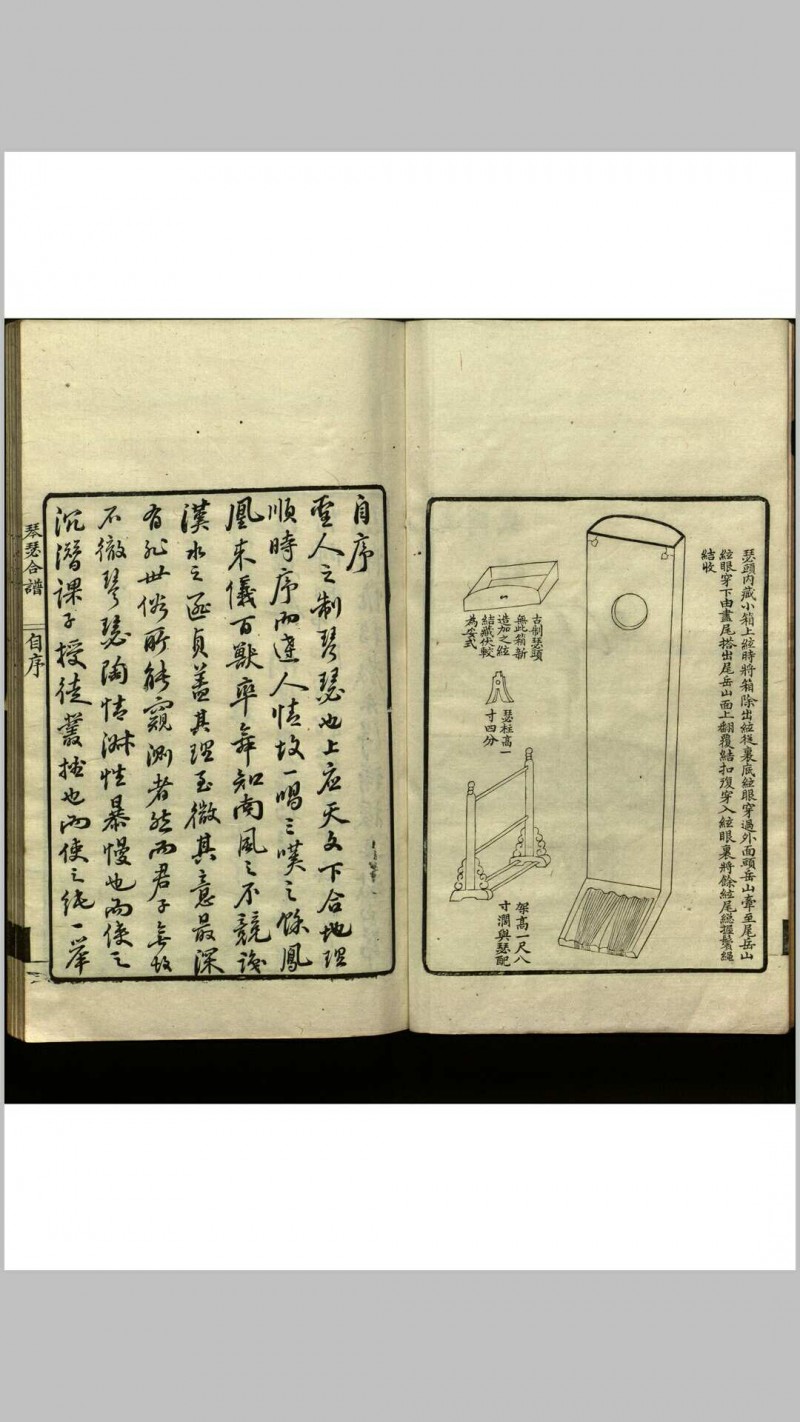 瑟頭内藏小箱上絃時將箱除出絃從裏底絃眼穿過外面頭岳山牽至尾岳山
絃眼穿下由盡尾搭出尾岳山面上翻覆結扣復穿入絃眼裏將餘絃尾総握鬃繩
結收
古制瑟頭
無此箱新
造加之絃
結藏伏較
為妥式
瑟柱高一
寸四分
架高一尺八
寸濶與瑟配
自序
聖人之制琴瑟也上应天文下合地理
順時序而達人情故一唱三嘆之餘鳳
凰来儀百獸率舞知南風之不競識
漢水之遊貞蓋其理至微其意最深
有非世俗所能窺測者然而君子無故
不徹琴瑟陶情淑性暴慢也而使之
沉潛課子授徒叢挫也而使之純一舉
琴瑟合譜
自序